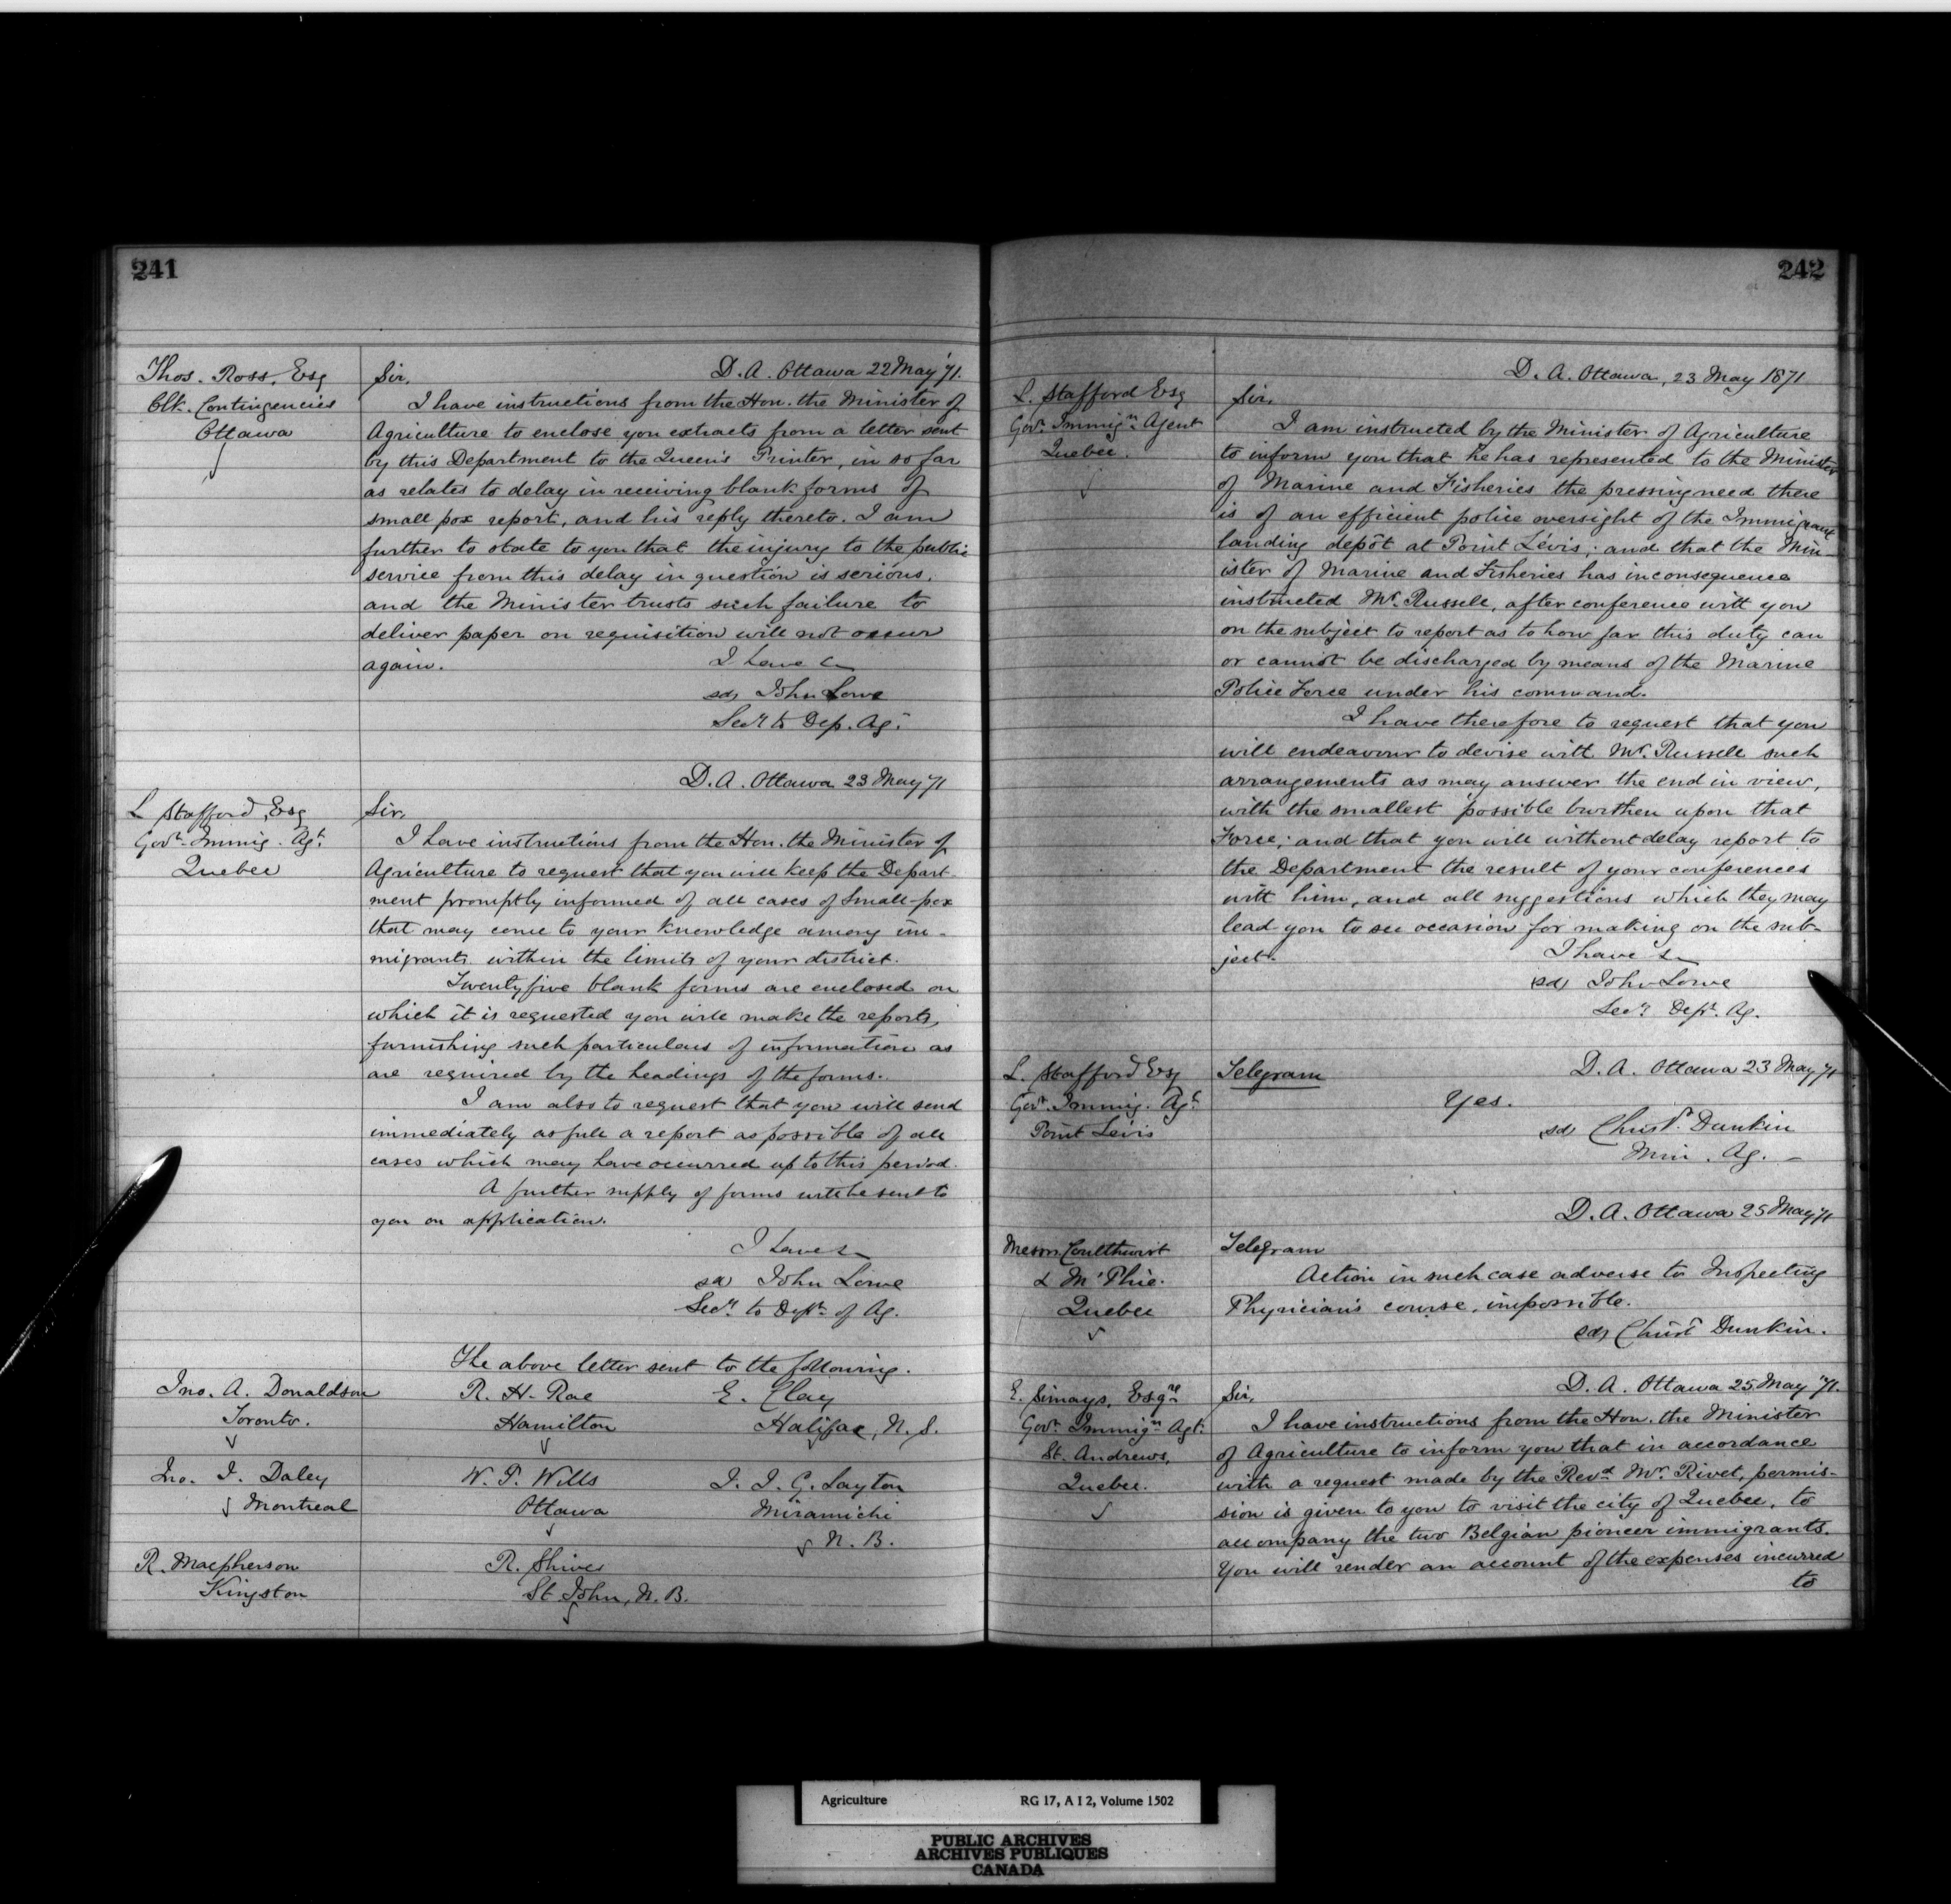 241
Thos. Ross, Esq
Clk. Contingencies
Ottawa
D. A. Ottawa 22 May '71.
Sir,
I have instructions from the Hon. the Minister of
Agriculture to enclose you extracts from a letter sent
by this Department to the Queen's Printer, in so far
as relates to delay in receiving blank forms of
small pox report, and his reply thereto. I am
further to state to you that the injury to the public
service from this delay in question is serious,
and the Minister trusts such failure to
deliver paper on requisition will not occur
again.
I have &c
sd, John Lowe
Secy to Dep. Ag.
D. A. Ottawa 23 May '71
L Stafford, Esq
Govt. Immig. Agt.
Quebec
Sir,
I have instructions from the Hon. the Minister of
Agriculture to request that you will keep the Depart-
ment promptly informed of all cases of Small-pox
that may come to your knowledge among im-
migrants within the limits of your district.
Twenty five blank forms are enclosed on
which it is requested you will make the reports,
furnishing such particulars of information as
are required by the headings of the forms.
I am also to request that you will send
immediately as full a report as possible of all
cases which may have occurred up to this period.
A further supply of forms will be sent to
you on application.
I have &c
sd John Lowe
Secy to Dept. of Ag.
The above letter sent to the following.
Jno. A. Donaldson
Toronto.
R. H. Rae
Hamilton
E. Clay
Halifax, N. S.
Jno. J. Daley
Montreal
W. J. Wills
Ottawa
J. J. G. Layton
Miramichi
N. B.
R. Macpherson
Kingston
R. Shives
St John, N. B.
242
D. A. Ottawa, 23 May 1871
L. Stafford Esq
Govt. Immign. Agent
Quebec.
Sir,
I am instructed by the Minister of Agriculture
to inform you that he has represented to the Minister
of Marine and Fisheries the pressing need there
is of an efficient police oversight of the Immigrant
landing depôt at Point Lévis; and that the Min-
ister of Marine and Fisheries has in consequence
instructed Mr. Russell, after conference with you
on the subject to report as to how far this duty can
or cannot be discharged by means of the Marine
Police Force under his command.
I have therefore to request that you
will endeavour to devise with Mr. Russell such
arrangements as may answer the end in view,
with the smallest possible burthen upon that
Force; and that you will without delay report to
the Department the result of your conferences
with him, and all suggestions which they may
lead you to see occasion for making on the sub-
ject.
I have &c
sd, John Lowe
Secy. Dept. Ag.
L. Stafford Esq
Govt. Immig. Agt.
Point Lévis
Telegram
D. A. Ottawa 23 May '71
Yes.
sd, Christr. Dunkin
Min. Ag.
D. A. Ottawa 25 May '71
Messrs. Coulthurst
& McPhie.
Quebec
Telegram
Action in such case adverse to Inspecting
Physician's course, impossible.
sd, Christ Dunkin.
D. A. Ottawa 25 May '71.
E. Simays, Esqre
Govt. Immign. Agt.
St. Andrews,
Quebec.
Sir,
I have instructions from the Hon. the Minister
of Agriculture to inform you that in accordance
with a request made by the Revd. Mr. Rivet, permis-
sion is given to you to visit the city of Quebec, to
accompany the two Belgian pioneer immigrants.
You will render an account of the expenses incurred
to
Agriculture RG 17, A I 2, Volume 1502
PUBLIC ARCHIVES
ARCHIVES PUBLIQUES
CANADA